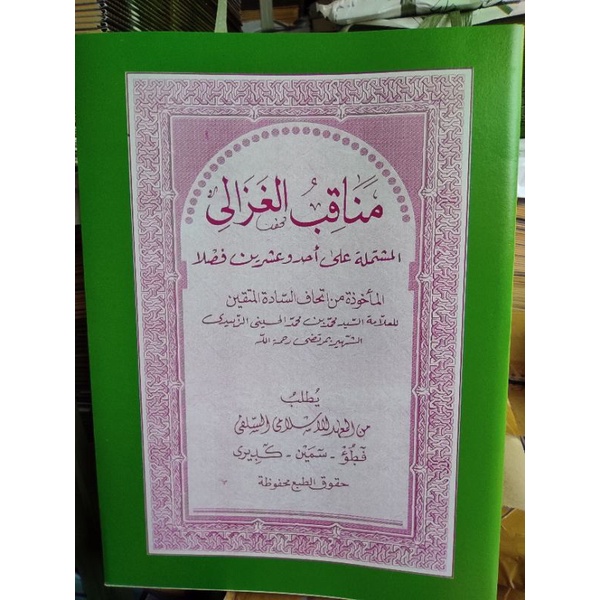 مَنَاقِبُ الغَزَالِي
المشتملة على أحد وعشرين فصلا
المأخوذة من اتحاف السادة المتقين
للعلامة السيد محمد بن محمد الحسيني الزبيدي
الشهير بمرتضى رحمه الله
يُطلبُ
من المعهد الإسلامي السلفي
فطوء - سمين - كديري
حقوق الطبع محفوظة